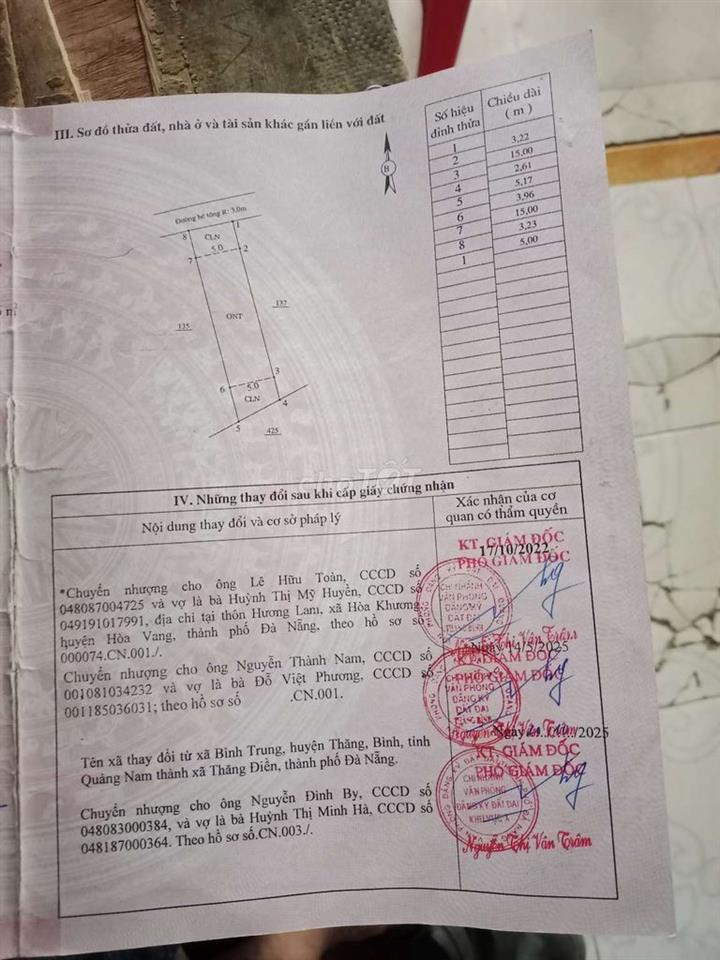 III. Sơ đồ thửa đất, nhà ở và tài sản khác gắn liền với đất
B
Đường bê tông R: 3.0m
8
1
CLN
7
5.0
2
135
ONT
132
6
5.0
3
CLN
4
5
425
Số hiệu đỉnh thửa
Chiều dài
( m )
1
3,22
2
15,00
3
2,61
4
5,17
5
3,96
6
15,00
7
3,23
8
5,00
1
m²
chợTỐT
IV. Những thay đổi sau khi cấp giấy chứng nhận
Nội dung thay đổi và cơ sở pháp lý
Xác nhận của cơ
quan có thẩm quyền
*Chuyển nhượng cho ông Lê Hữu Toàn, CCCD số
048087004725 và vợ là bà Huỳnh Thị Mỹ Huyền, CCCD số
049191017991, địa chỉ tại thôn Hương Lam, xã Hòa Khương,
huyện Hòa Vang, thành phố Đà Nẵng, theo hồ sơ số
000074.CN.001./.
KT. GIÁM ĐỐC
17/10/2022
PHÓ GIÁM ĐỐC
CHI NHÁNH
VĂN PHÒNG
ĐĂNG KÝ
ĐẤT ĐAI
Nguyễn Thị Vân Trâm
Chuyển nhượng cho ông Nguyễn Thành Nam, CCCD số
001081034232 và vợ là bà Đỗ Việt Phương, CCCD số
001185036031; theo hồ sơ số .CN.001.
4/5/2025
KT. GIÁM ĐỐC
PHÓ GIÁM ĐỐC
CHI NHÁNH
VĂN PHÒNG
ĐĂNG KÝ
ĐẤT ĐAI
Nguyễn Thị Vân Trâm
Tên xã thay đổi từ xã Bình Trung, huyện Thăng, Bình, tỉnh
Quảng Nam thành xã Thăng Điền, thành phố Đà Nẵng.
Chuyển nhượng cho ông Nguyễn Đình By, CCCD số
048083000384, và vợ là bà Huỳnh Thị Minh Hà, CCCD số
048187000364. Theo hồ sơ số.CN.003./.
KT. GIÁM ĐỐC
PHÓ GIÁM ĐỐC
CHI NHÁNH
VĂN PHÒNG
ĐĂNG KÝ ĐẤT ĐAI
KHU VỰC X
Nguyễn Thị Vân Trâm